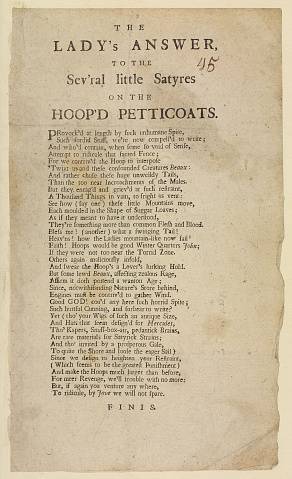 THE
LADY's ANSWER,
TO THE
45
Sev'ral little Satyres
ON THE
HOOP'D PETTICOATS.
PRovock'd at length by such inhumane Spite,
Such sordid Stuff, we're now compell'd to write;
And who'd contain, when some so void of Sense,
Attempt to ridicule that sacred Fence;
For we contriv'd the Hoop to interpose
'Twixt us and these confounded Creatures Beaux:
And rather chose these huge unwieldy Tails,
Than the too near Incroachments of the Males.
But they enrag'd and griev'd at such restraint,
A Thousand Things in vain, to fright us vent:
See how (say one) these little Mountains move,
Each moulded in the Shape of Suggar Loaves;
As if they meant to have it understood,
They're something more than common Flesh and Blood.
Bless me! (another) what a swinging Tail!
Heav'ns! how the Ladies mountain-like now sail!
Faith! Hoops would be good Winter Quarters John;
If they were not too near the Torrid Zone.
Others again maliciously unfold,
And swear the Hoop's a Lever's lurking Hold.
But some lewd Beaux, affecting zealous Rage,
Affirm it doth portend a wanton Age;
Since, notwithstanding Nature's Store behind,
Engines must be contriv'd to gather Wind.
Good GOD! cou'd any here such horrid Spite;
Such hurtful Cunning, and forbear to write?
Yet (tho' your Wigs of such an antique Size,
And Hats that seem design'd for Hercules,
Tho' Kapers, Snuff-box-air, pedantick Strains,
Are rare materials for Satyrick Strains;
And tho' invited by a prosperous Gale,
To quite the Shore and loose the eager Sail)
Since we design to heighten your Restraint,
(Which seems to be the greatest Punishment)
And make the Hoops much larger than before,
For meer Revenge, we'll trouble with no more:
But, if again you venture any where,
To ridicule, by Jove we will not spare.
FINIS.